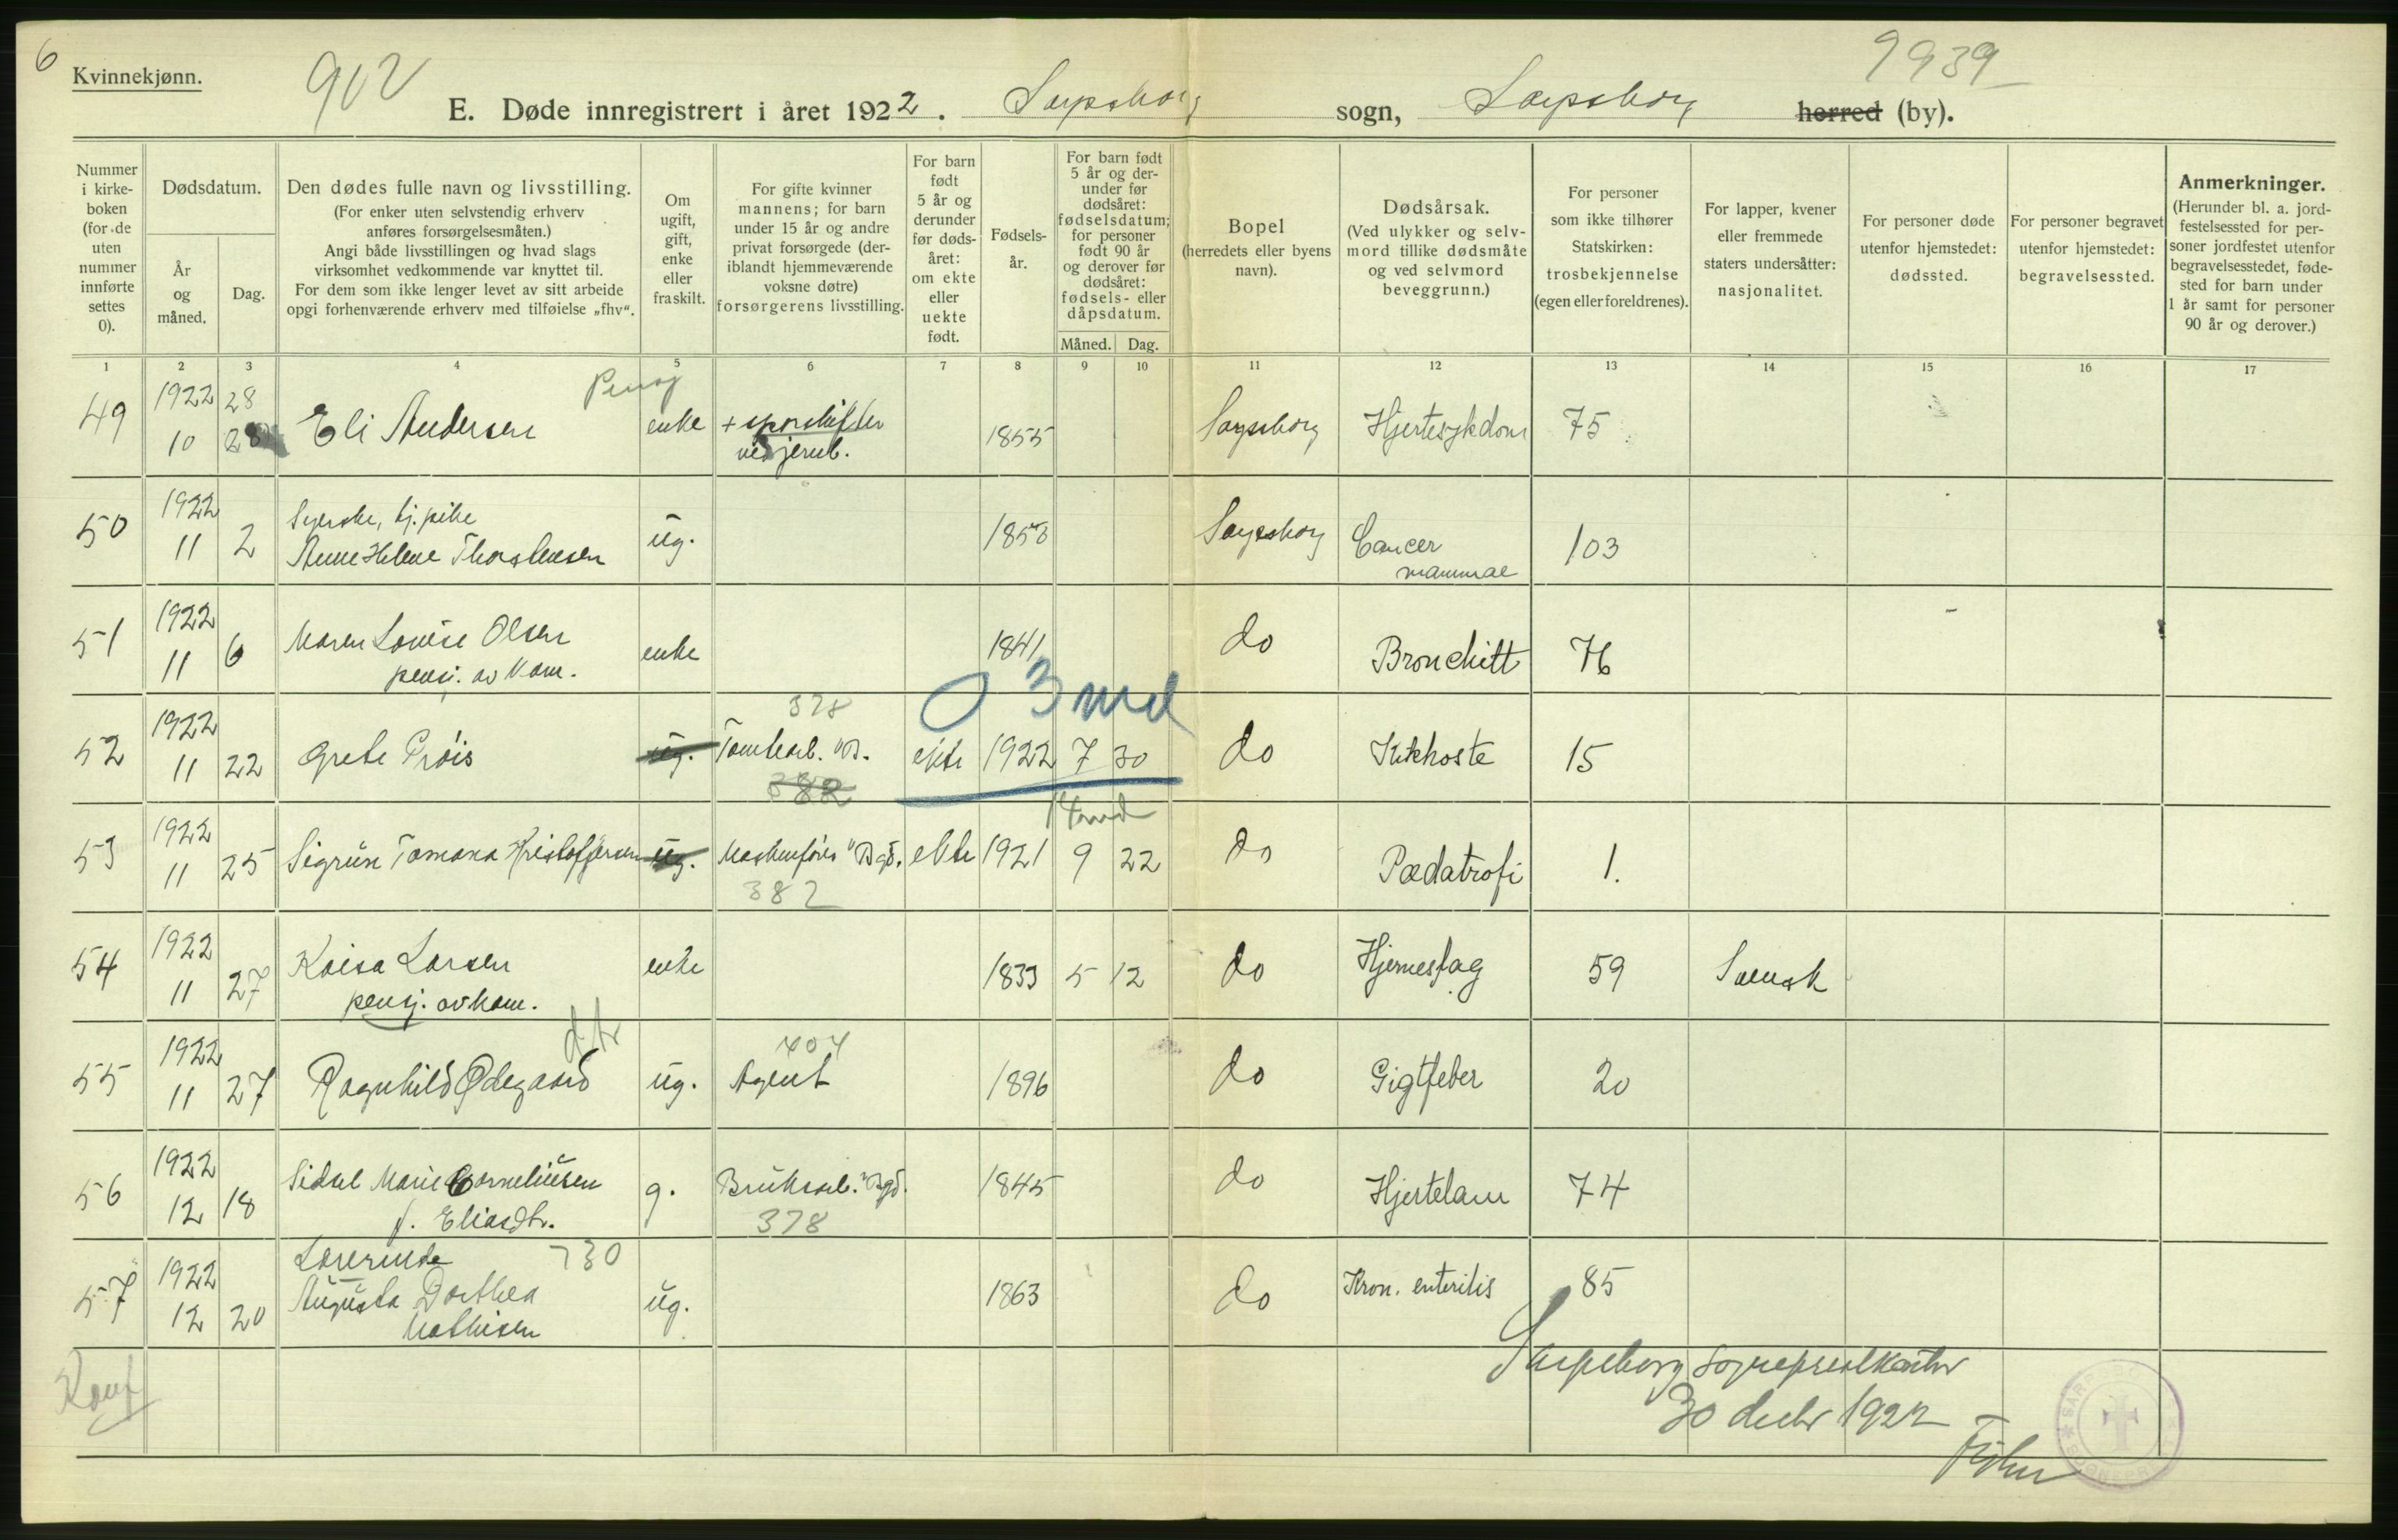 6
Kvinnekjønn.
902
9939
E. Døde innregistrert i året 1922. Sarpsborg sogn, Sarpsborg herred (by).
Nummer i kirke-boken (for de uten nummer innførte settes 0).
Dødsdatum.
År og måned.
Dag.
Den dødes fulle navn og livsstilling.
(For enker uten selvstendig erhverv anføres forsørgelsesmåten.)
Angi både livsstillingen og hvad slags virksomhet vedkommende var knyttet til.
For dem som ikke lenger levet av sitt arbeide opgi forhenværende erhverv med tilføielse „fhv“.
Om ugift, gift, enke eller fraskilt.
For gifte kvinner mannens; for barn under 15 år og andre privat forsørgede (deriblandt hjemmeværende voksne døtre) forsørgerens livsstilling.
For barn født 5 år og derunder før døds-året: om ekte eller uekte født.
Fødsels-år.
For barn født 5 år og der-under før dødsåret: fødselsdatum; for personer født 90 år og derover før dødsåret: fødsels- eller dåpsdatum.
Måned.
Dag.
Bopel (herredets eller byens navn).
Dødsårsak.
(Ved ulykker og selv-mord tillike dødsmåte og ved selvmord beveggrunn.)
For personer som ikke tilhører Statskirken: trosbekjennelse (egen eller foreldrenes).
For lapper, kvener eller fremmede staters undersåtter: nasjonalitet.
For personer døde utenfor hjemstedet: dødssted.
For personer begravet utenfor hjemstedet: begravelsessted.
Anmerkninger.
(Herunder bl. a. jord-festelsessted for per-soner jordfestet utenfor begravelsesstedet, føde-sted for barn under 1 år samt for personer 90 år og derover.)
1 2 3 4 5 6 7 8 9 10 11 12 13 14 15 16 17
Pensj
49 1922 10 28 28 Eli Andersen enke + sporskifter ved jernb. 1855 Sarpsborg Hjertesykdom 75
50 1922 11 2 Syerske, tj. pike
Anne Helene Thorstensen ug. 1858 Sarpsborg Cancer mammae 103
51 1922 11 6 Maren Lovise Olsen
pensj. av kom. enke 1841 do Bronchitt 76
0 3 md
378
52 1922 11 22 Grete Prøis ug. Tomtearb. B. ekte 1922 7 30 do Kikhoste 15
382
14 md
53 1922 11 25 Sigrun Tomana Kristoffersen ug. Maskinfører Bgd. ekte 1921 9 22 do Pædatrofi 1.
382
54 1922 11 27 Kaisa Larsen
pensj. av kom. enke 1833 5 12 do Hjerneslag 59 Svensk
dtr
404
55 1922 11 27 Ragnhild Ødegaard ug. Agent 1896 do Gigtfeber 20
56 1922 12 18 Sidsel Marie Corneliusen
f. Eliasdtr. g. Bruksarb. Bgd. 1845 do Hjertelam 74
378
57 1922 12 20 Lærerinde 730
Augusta Dorthea
Mathisen ug. 1863 do Kron. enteritis 85
Sarpsborg sogneprestkontor
30 decbr 1922